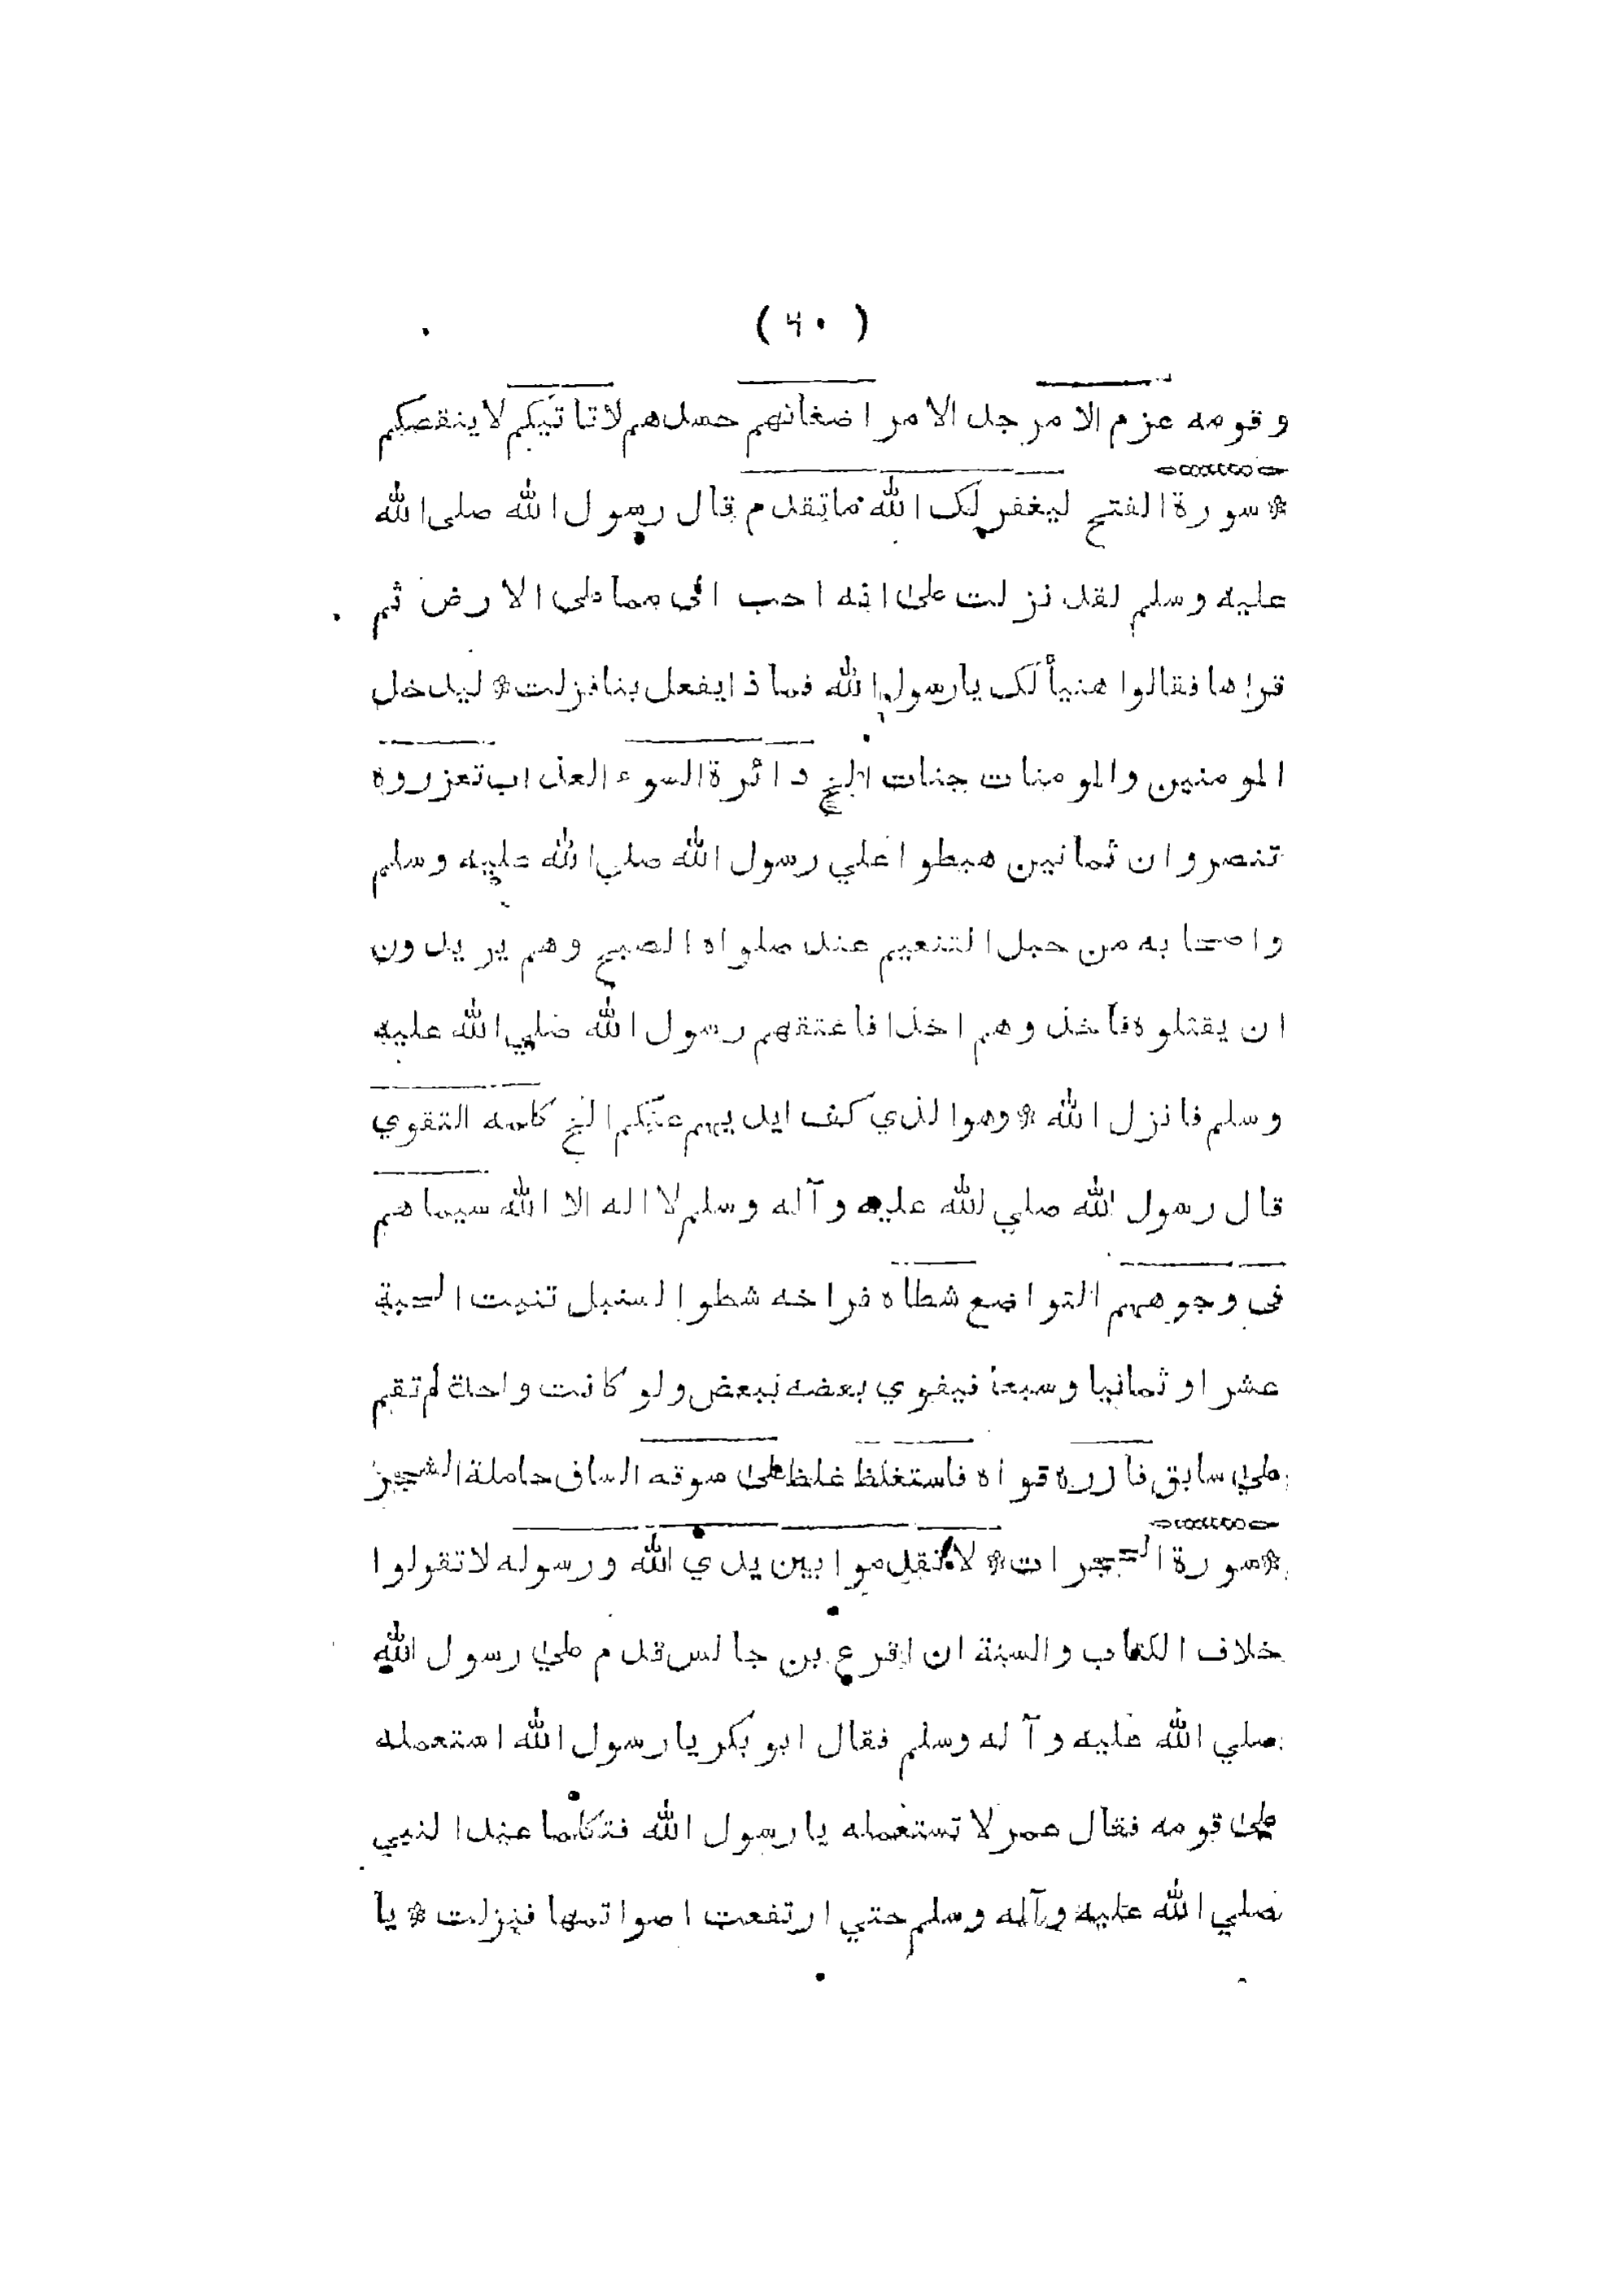 ( ۶۰ )
و قومه عزم الامر جد الامر اضغانهم حسدهم لاتاتيكم لاينقصكم
* سورة الفتح ليغفر لك الله ماتقدم قال رسول الله صلى الله
عليه وسلم لقد نزلت على انه احب الى مما على الارض ثم
قراها فقالوا هنيأ لك يارسول الله فماذا يفعل بنا فنزلت * ليدخل
المومنين والمومنات جنات الخ دائرة السوء العذاب تعزروه
تنصروان ثمانين هبطوا علي رسول الله صلي الله عليه وسلم
واصحابه من حبل التنعيم عند صلواه الصبح وهم يريدون
ان يقتلوه فاخذ وهم اخذا فاعتقهم رسول الله صلي الله عليه
وسلم فانزل الله * وهوالذي كف ايديهم عنكم الخ كلمه التقوي
قال رسول الله صلي الله عليه وآله وسلم لا اله الا الله سيماهم
فى وجوههم التواضع شطاه فراخه شطو السنبل تنبت الحبة
عشر او ثمانيا وسبعا فيقوي بعضه ببعض ولو كانت واحدة لم تقم
علي سابق فآزره قواه فاستغلظ غلظ على سوقه الساف حاملة الشجر
* سورة الحجرات * لاتقدموا بين يدي الله ورسوله لاتقولوا
خلاف الكتاب والسنة ان اقرع بن جالس قدم علي رسول الله
صلي الله عليه وآله وسلم فقال ابو بكر يارسول الله استعمله
على قومه فقال عمر لا تستعمله يارسول الله فتكلما عند النبي
صلي الله عليه وآله وسلم حتي ارتفعت اصواتهما فنزلت * يا